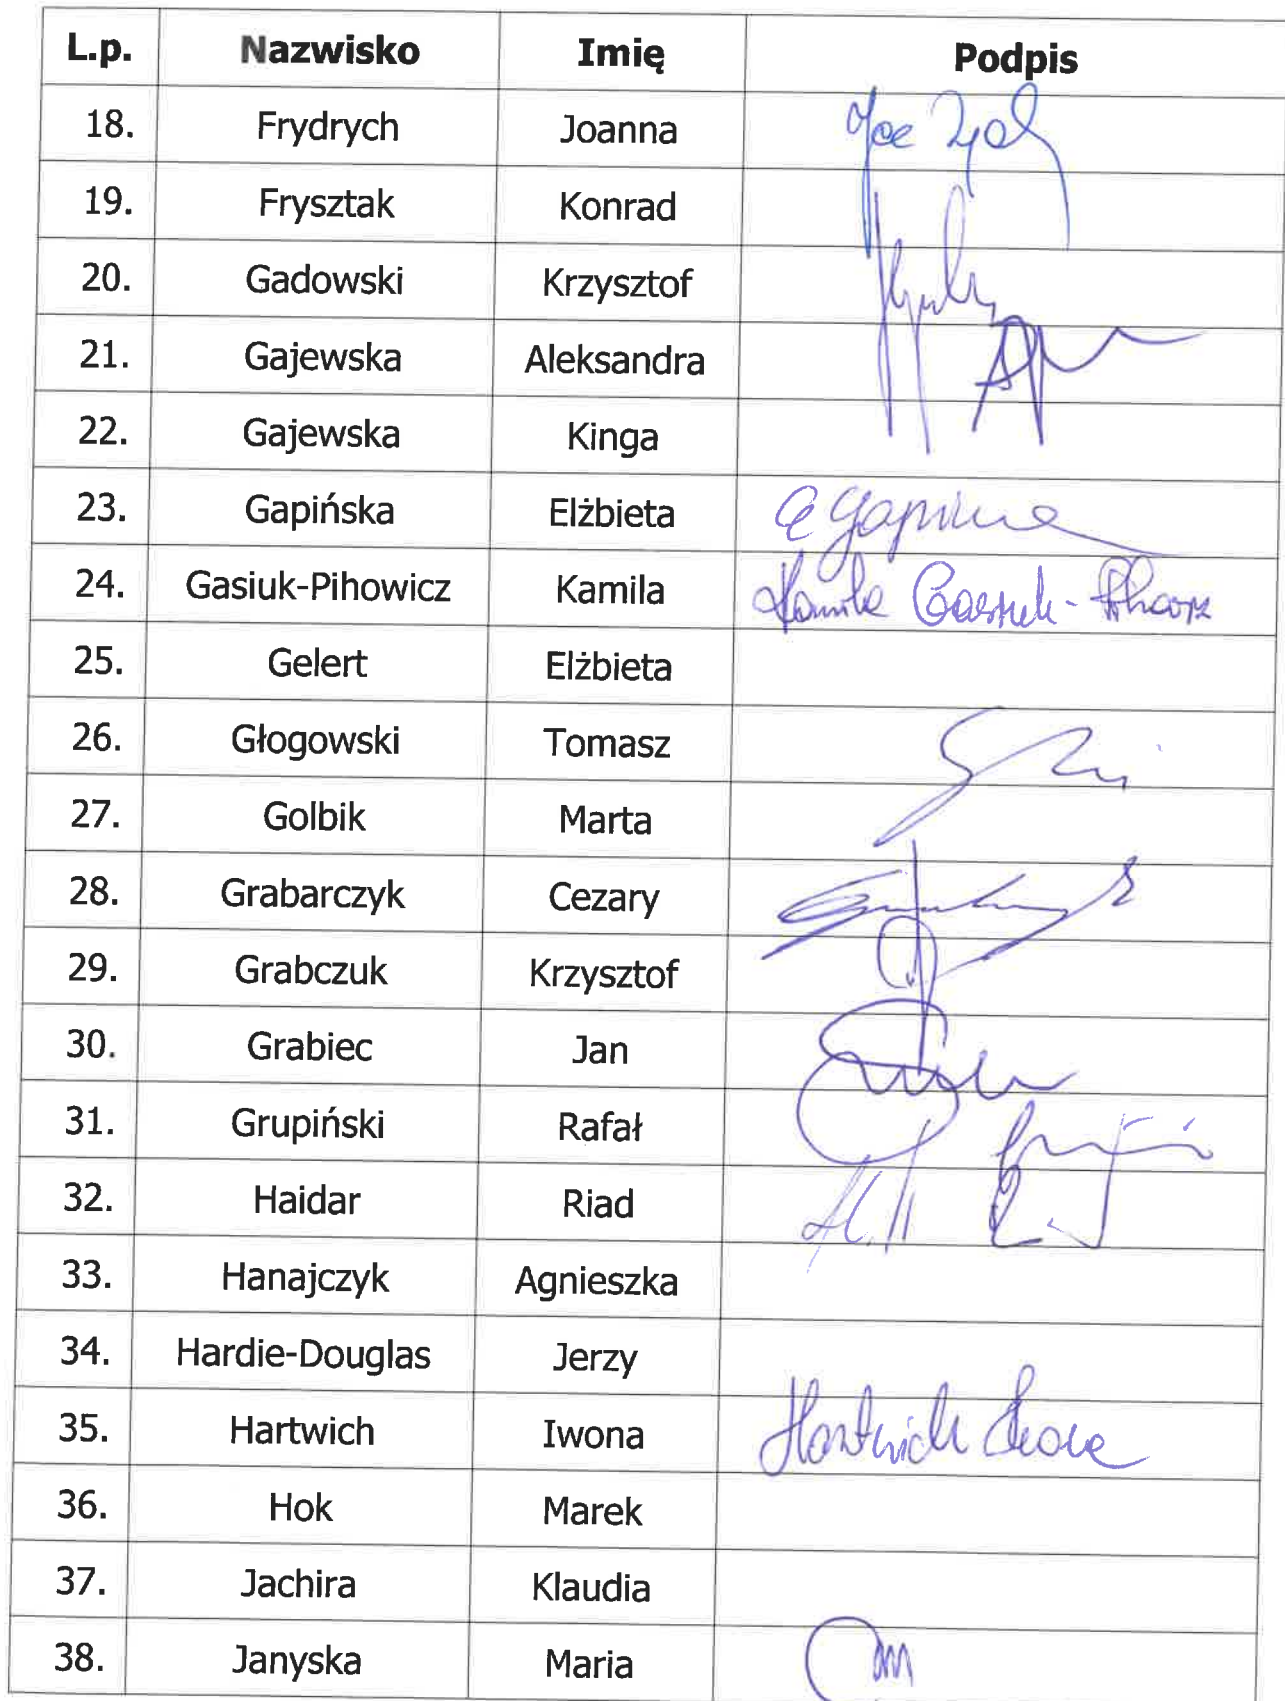 L.p. Nazwisko Imię Podpis
18. Frydrych Joanna
19. Frysztak Konrad
20. Gadowski Krzysztof
21. Gajewska Aleksandra
22. Gajewska Kinga
23. Gapińska Elżbieta
24. Gasiuk-Pihowicz Kamila Kamila Gasiuk-Pihowicz
25. Gelert Elżbieta
26. Głogowski Tomasz
27. Golbik Marta
28. Grabarczyk Cezary
29. Grabczuk Krzysztof
30. Grabiec Jan
31. Grupiński Rafał
32. Haidar Riad
33. Hanajczyk Agnieszka
34. Hardie-Douglas Jerzy
35. Hartwich Iwona Hartwich Iwona
36. Hok Marek
37. Jachira Klaudia
38. Janyska Maria